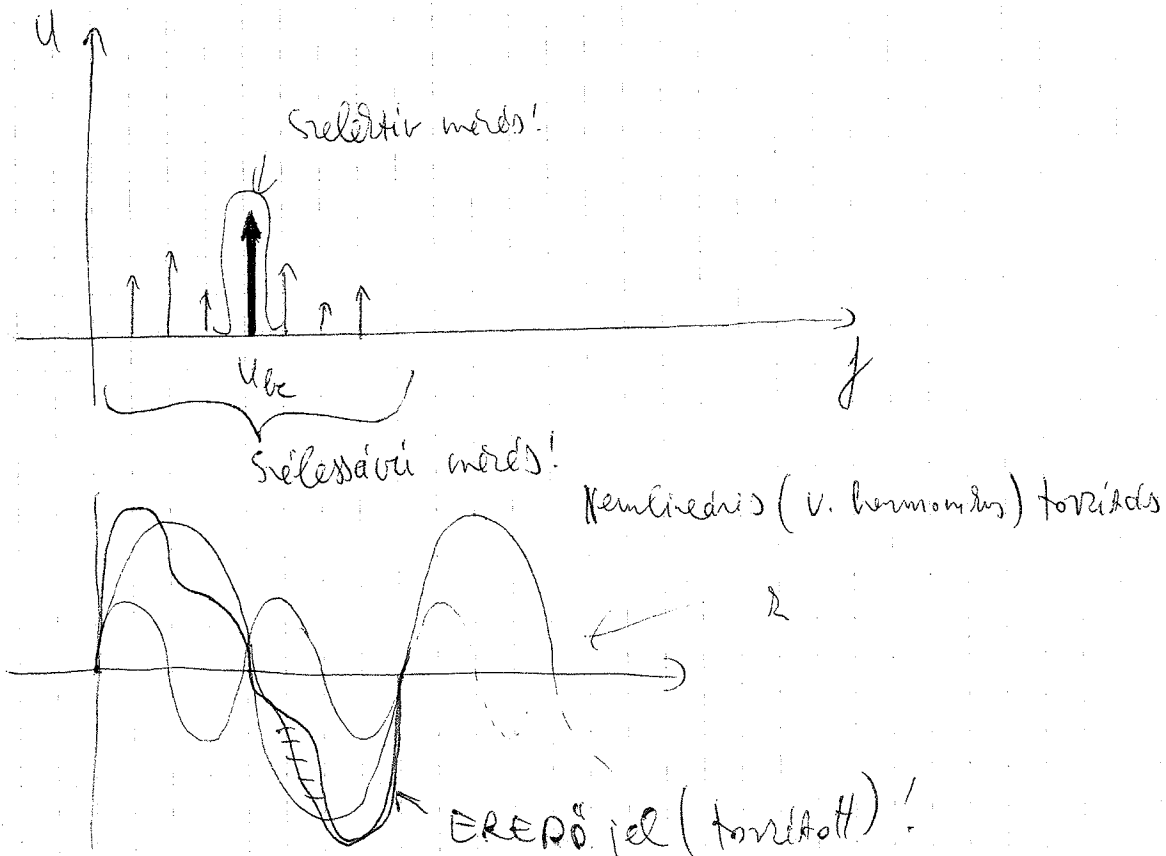 U
Szelektív mérés!
Ube
f
Szélessávú mérés!
Nemlineáris (v. harmonikus) torzítás
k
EREDŐ jel (torzított)!